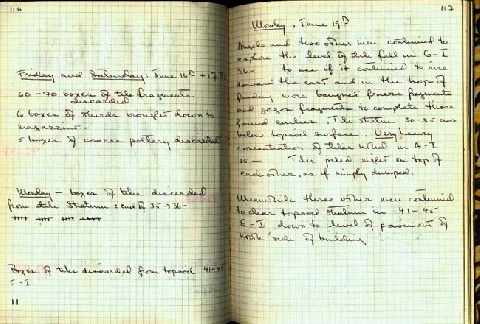 116
Friday and Saturday: June 16th + 17th
60-70 boxes of tile fragments
discarded
6 boxes of sherds brought down to
magazine
5 boxes of coarse pottery discarded
Monday - boxes of tiles discarded
from tile stratum:
Boxes of tile discarded from topsoil 41-45
11
117
Monday, June 19th
and two other men continued to
explore the level of tile fall in E-I
36- to see if it continued to rise
toward the east and in the hope of
finding more fragments
and fragments to complete those
found earlier. The stratum 20-25 cm
below topsoil surface. Very heavy
concentration of tiles noted in E-I
35 - Tiles piled right on top of
each other, as if simply dumped.
Meanwhile three other men continued
to clear topsoil stratum in 41-45
E-I down to level of pavement of
north side of building